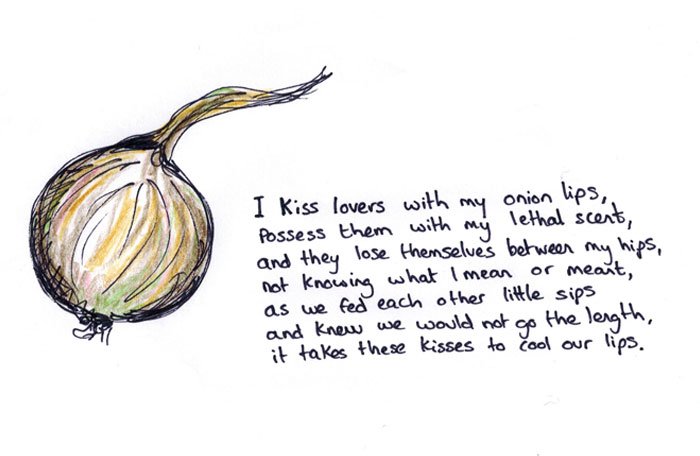 I Kiss lovers with my onion lips,
Possess them with my lethal scent,
and they lose themselves between my hips,
not knowing what I mean or meant,
as we fed each other little sips
and knew we would not go the length,
it takes these kisses to cool our lips.